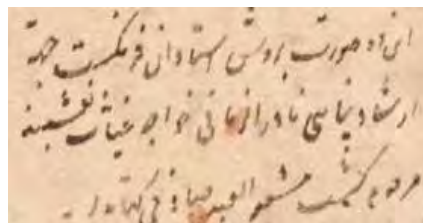 این ده صورت بروش استادان فرنگست جهة
ارشاد پناهی نادر الزمانی خواجه غیاث نقشبند
مرقوم گشت مشقه العبد صادقی کتابدار